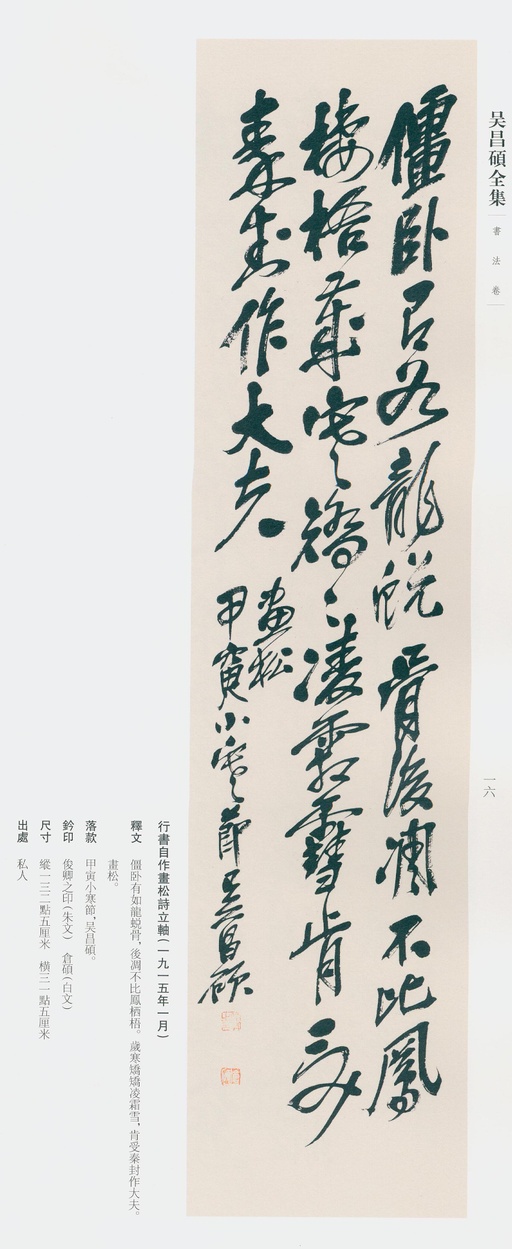 吴昌碩全集
書法卷
一六
僵卧有如龍蜕骨後凋不比鳳
棲梧歲寒矯〻凌霜雪肯受
秦封作大夫
畫松
甲寅小寒節吴昌碩
行書自作畫松詩立軸(一九一五年一月)
釋文 僵卧有如龍蜕骨，後凋不比鳳栖梧。歲寒矯矯凌霜雪，肯受秦封作大夫。
畫松。
落款 甲寅小寒節，吴昌碩。
鈐印 俊卿之印(朱文) 倉碩(白文)
尺寸 縱一三二點五厘米 横三一點五厘米
出處 私人